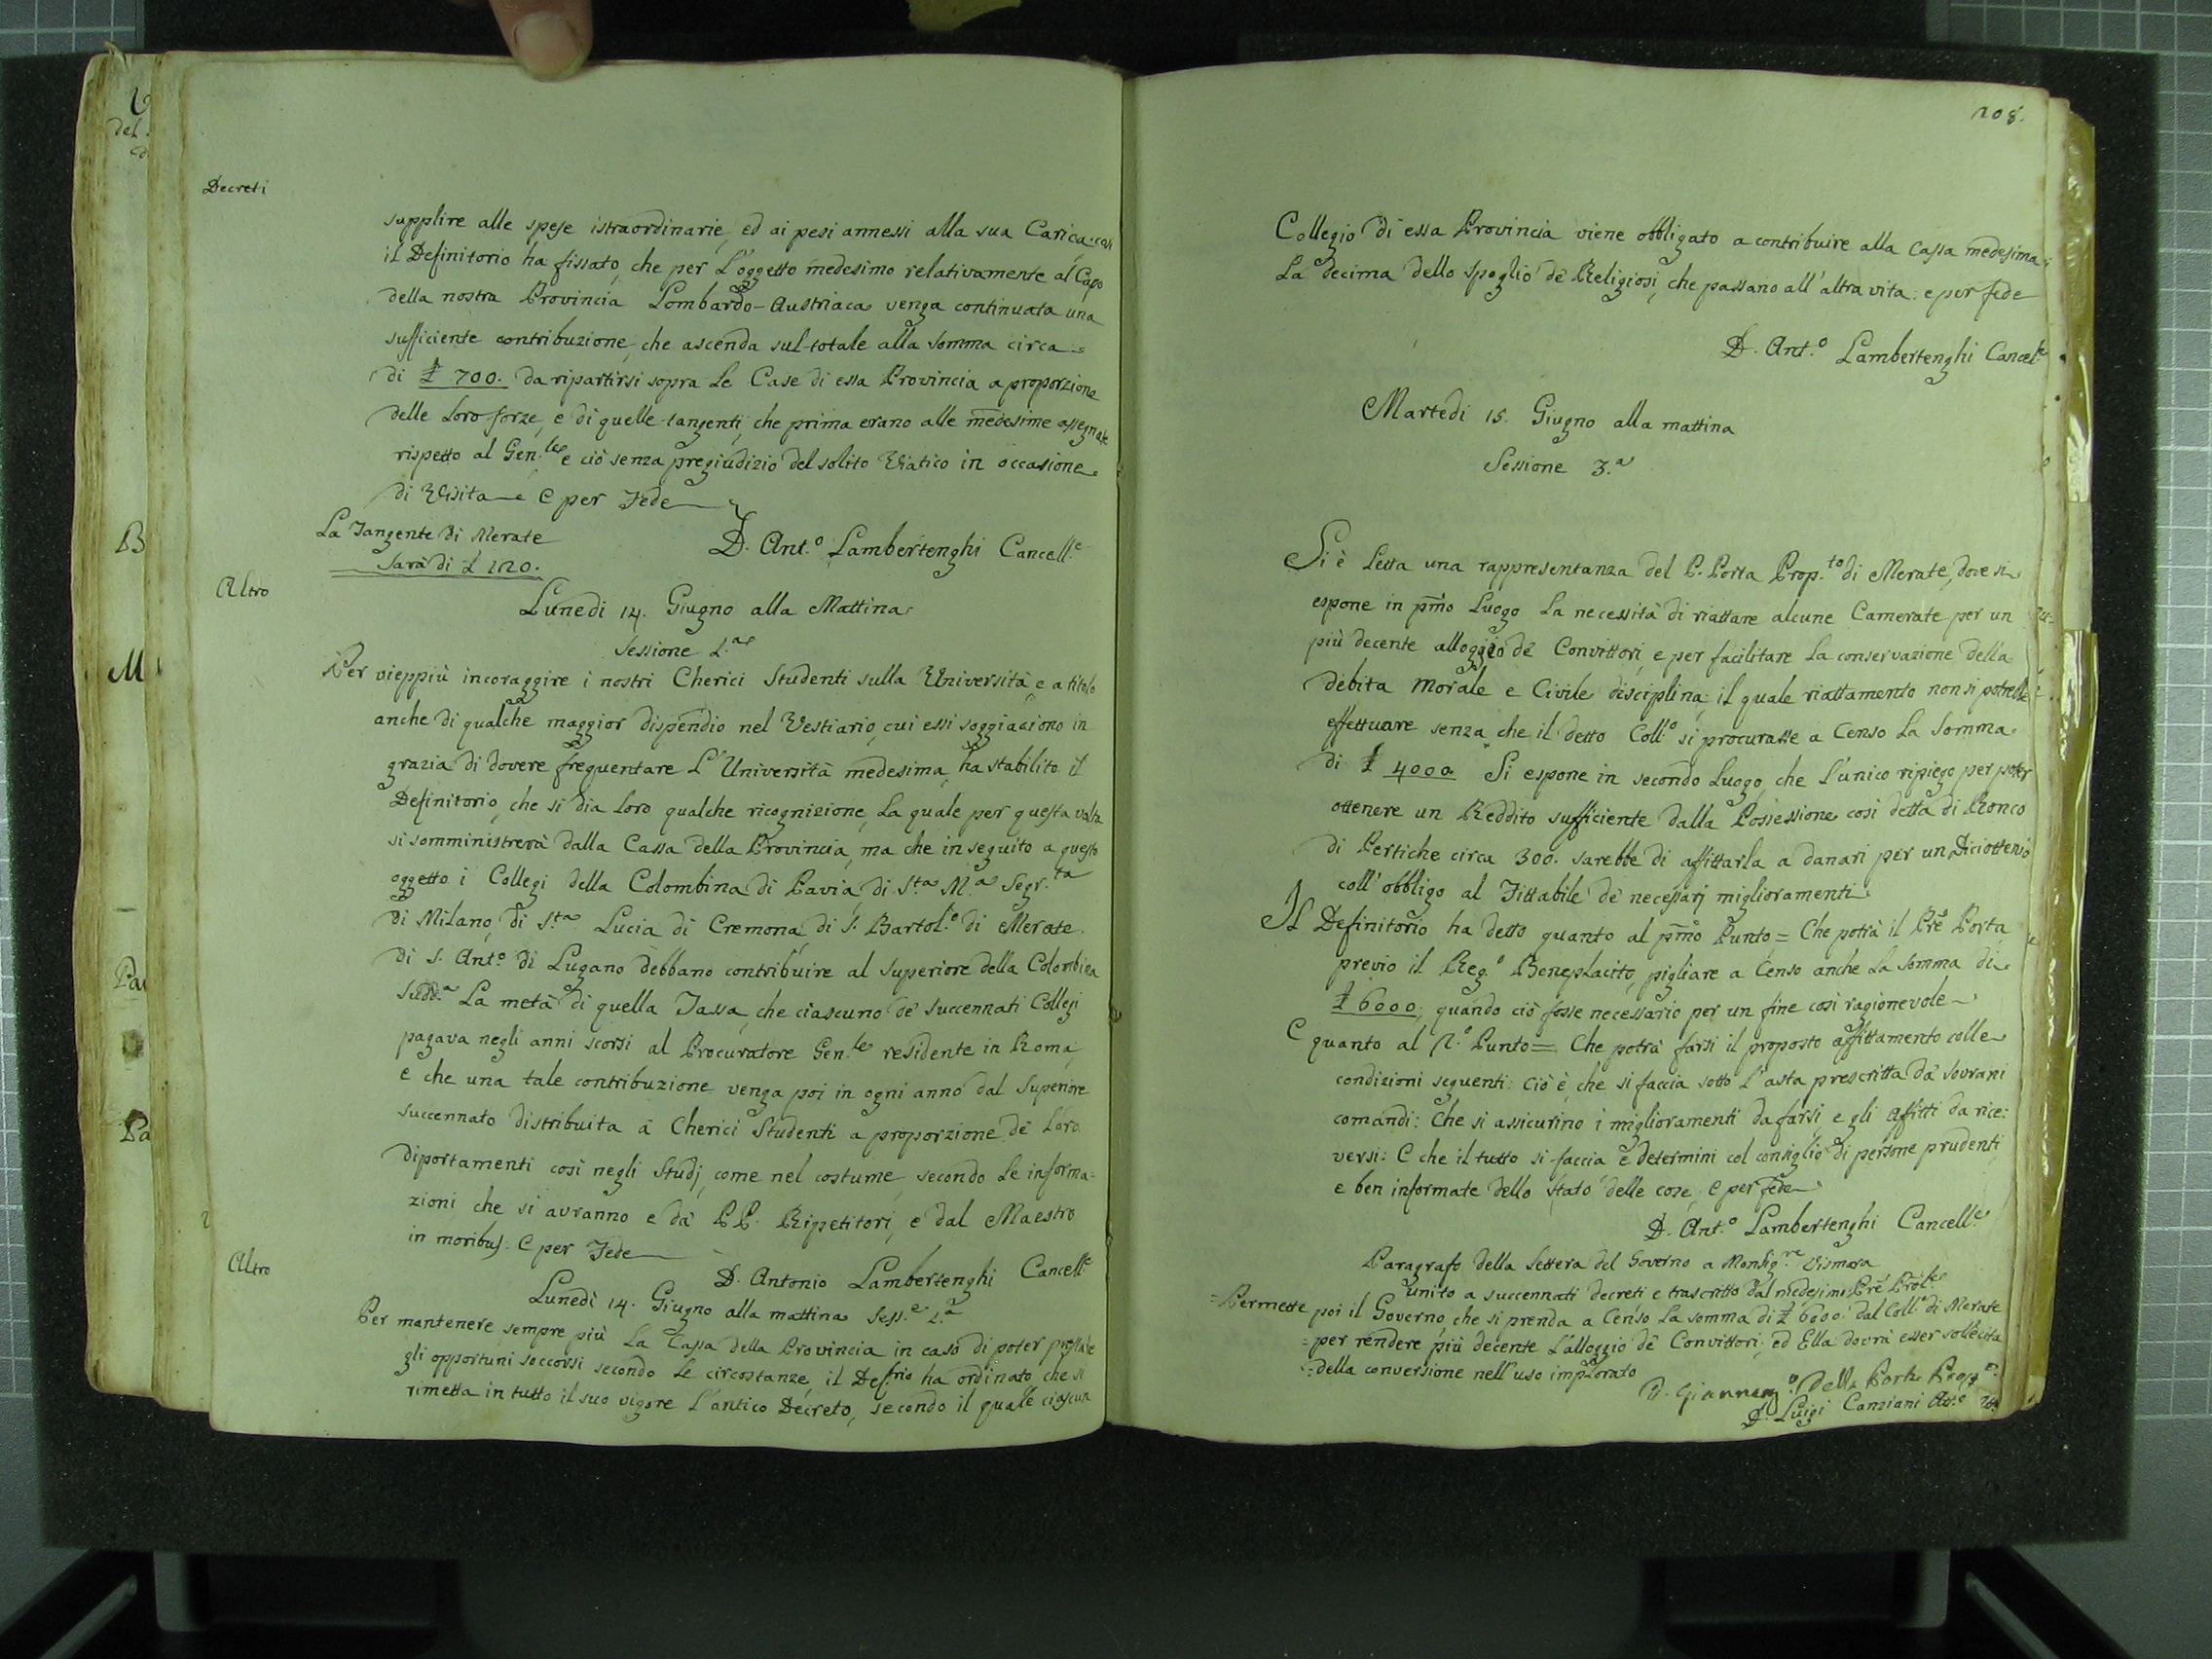 Decreti
supplire alle spese istraordinarie, ed ai pesi annessi alla sua Carica: così
il Definitorio ha fissato, che per l'oggetto medesimo relativamente al Capo
della nostra Provincia Lombardo-Austriaca venga continuata una
sufficiente contribuzione, che ascenda sul totale alla somma circa
di £ 700. da ripartirsi sopra le Case di essa Provincia a proporzione
delle loro forze, e di quelle tangenti, che prima erano alle medesime assegnate
rispetto al Gen.le e ciò senza pregiudizio del solito Viatico in occasione
di Visita e per Fede
La Tangente di Merate
sarà di £ 120.
D. Ant.o Lambertenghi Cancell.e
Altro
Lunedì 14. Giugno alla Mattina
Sessione 2.a
Per vieppiù incoraggire i nostri Cherici Studenti sulla Università e a titolo
anche di qualche maggior dispendio nel Vestiario, cui essi soggiaciono in
grazia di dovere frequentare l'Università medesima, ha stabilito il
Definitorio, che si dia loro qualche ricognizione, la quale per questa volta
si somministrerà dalla Cassa della Provincia, ma che in seguito a questo
oggetto i Collegi della Colombina di Pavia, di S.ta M.a Segr.ta
di Milano, di S.ta Lucia di Cremona, di S. Bartol.o di Merate
di S. Ant.o di Lugano debbano contribuire al Superiore della Colombina
sudd.a la metà di quella Tassa, che ciascuno de' succennati Collegi
pagava negli anni scorsi al Procuratore Gen.le residente in Roma,
e che una tale contribuzione venga poi in ogni anno dal Superiore
succennato distribuita a' Cherici Studenti a proporzione de' loro
diportamenti così negli Studj, come nel costume, secondo le informa=
zioni che si avranno e da' PP. Ripetitori, e dal Maestro
in moribus. e per Fede
D. Antonio Lambertenghi Cancell.e
Altro
Lunedì 14. Giugno alla mattina Sess.e 2.a
Per mantenere sempre più la Cassa della Provincia in caso di poter prestare
gli opportuni soccorsi secondo le circostanze, il Def.rio ha ordinato, che si
rimetta in tutto il suo vigore l'antico Decreto, secondo il quale ciascun
208.
Collegio di essa Provincia viene obbligato a contribuire alla Cassa medesima
la decima dello spoglio de' Religiosi, che passano all'altra vita: e per fede
D. Ant.o Lambertenghi Cancel.e
Martedì 15. Giugno alla mattina
Sessione 3.a
Si è letta una rappresentanza del P. Porta Prop.to di Merate, dove si
espone in p̄mo luogo la necessità di riattare alcune Camerate per un
più decente alloggio de' Convittori, e per facilitare la conservazione della
debita Morale e Civile disciplina; il quale riattamento non si potrebbe
effettuare senza che il detto Coll.o si procurasse a Censo la somma
di £ 4000. Si espone in secondo luogo, che l'unico ripiego per poter
ottenere un Reddito sufficiente dalla Possessione così detta di Ronco
di Pertiche circa 300. sarebbe di affittarla a danari per un Diciottenio
coll'obbligo al Fittabile de' necessarj miglioramenti.
Il Definitorio ha detto quanto al p̄mo Punto = Che potrà il Pre Porta
previo il Reg.o Beneplacito, pigliare a Censo anche la somma di
£ 6000, quando ciò fosse necessario per un fine così ragionevole
E quanto al 2.o Punto = Che potrà farsi il proposto affittamento colle
condizioni seguenti: ciò è, che si faccia sotto l'asta prescritta da' sovrani
comandi: Che si assicurino i miglioramenti da farsi, e gli affitti da rice:
versi: E che il tutto si faccia e determini col consiglio di persone prudenti
e ben informate dello stato delle cose, e per fede
D. Ant.o Lambertenghi Cancell.e
Paragrafo della lettera del Governo a Monsig.re Vismara
unito a succennati decreti e trascritto dal medesimo Prē Prōle
= Permette poi il Governo, che si prenda a Censo la somma di £ 6000. dal Coll.o di Merate
= per rendere più decente l'alloggio de' Convittori, ed Ella dovrà esser sollecita
= della conversione nell'uso implorato
D. Giannang.o Della Porta Prop.to
D. Luigi Canziani Att.o